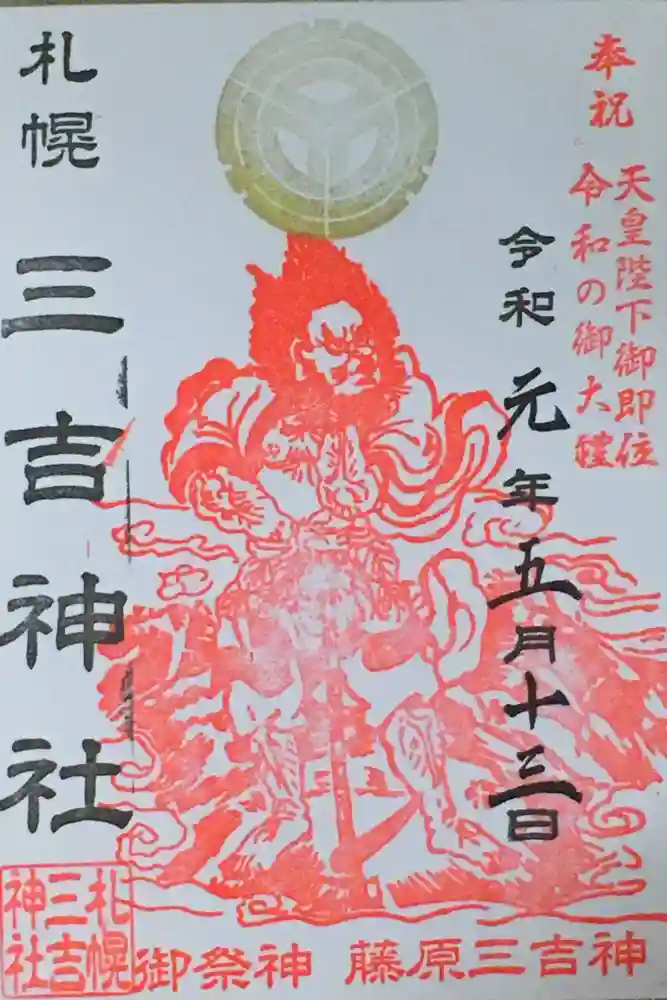 奉祝
天皇陛下御即位
令和の御大禮
令和元年五月十三日
札幌 三吉神社
札幌
三吉
神社
御祭神 藤原三吉神